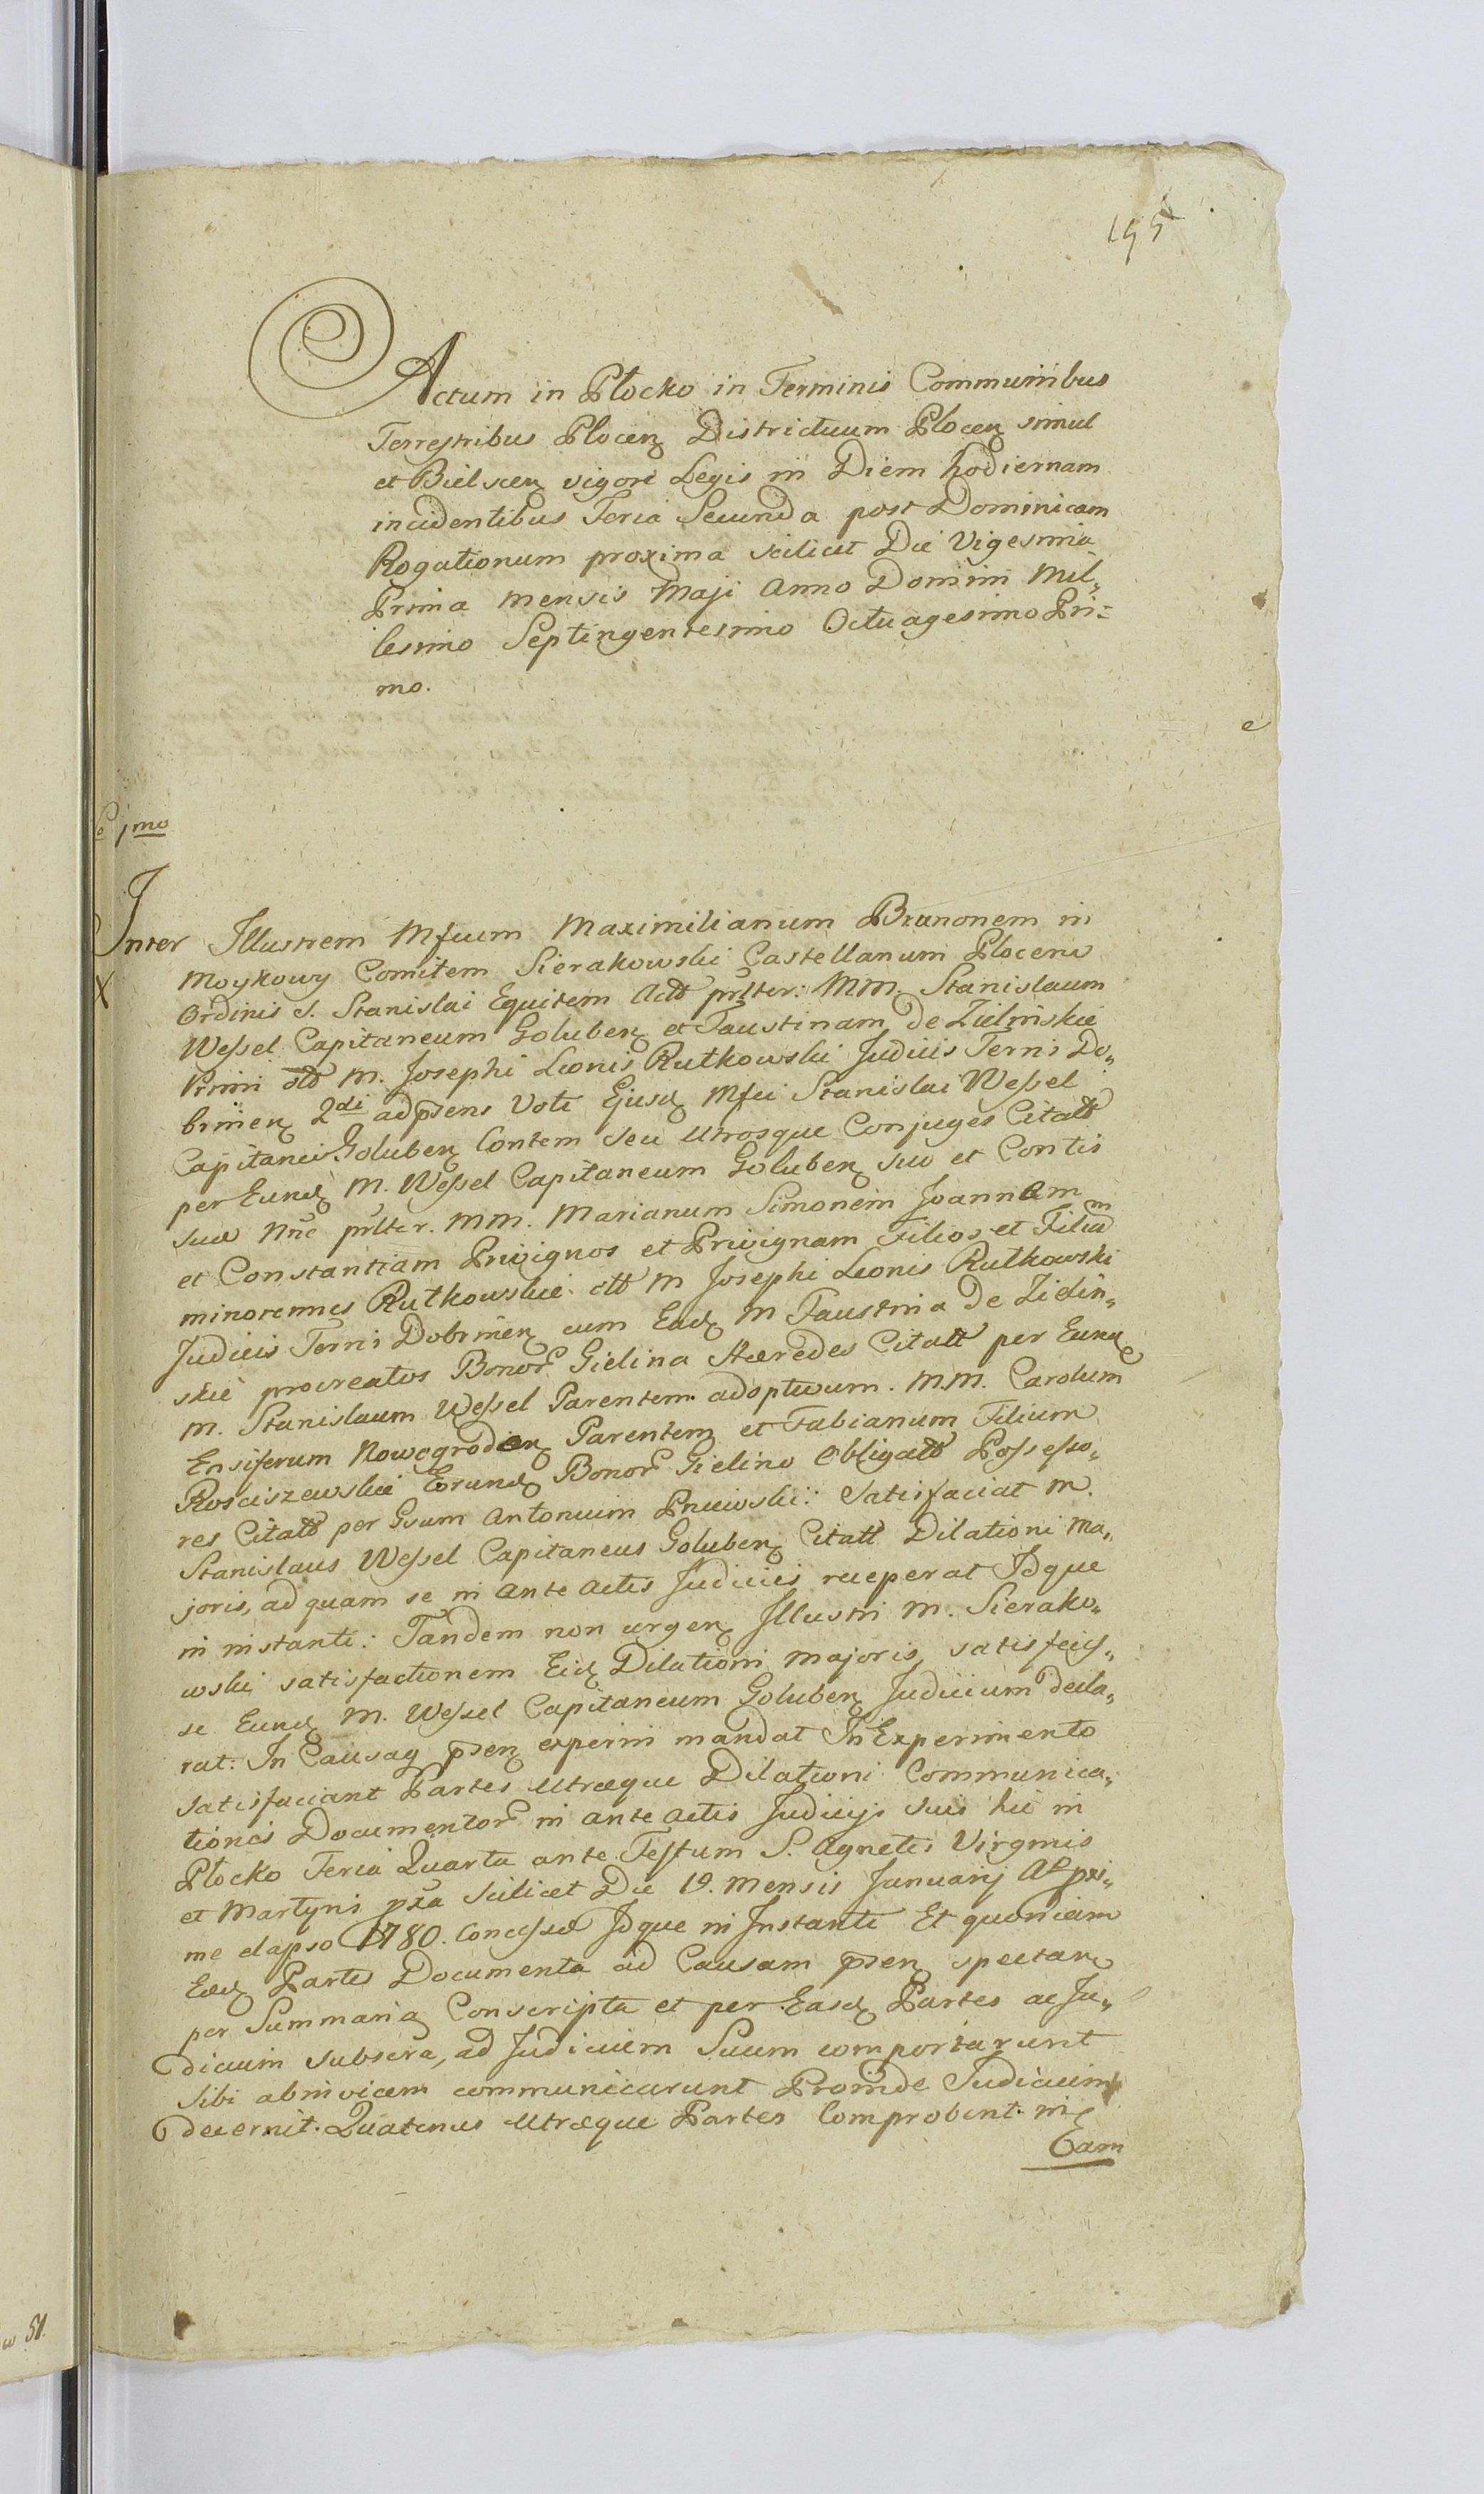 195
Actum in Płocko in Terminis Communibus
Terrestribus Plocen Districtuum Plocen simul
et Bielscen vigore Legis in Diem hodiernam
incidentibus Feria Secunda post Dominicam
Rogationum proxima scilicet Die Vigesima
Prima mensis Maji Anno Domini Mil„
lesimo Septingentesimo Octuagesimo Pri=
mo.
1mo
Inter Illustrem Mfcum Maximilianum Brunonem in
Moykowy Comitem Sierakowski Castellanum Plocens
Ordinis S. Stanislai Equitem Actt prlter: MM. Stanislaum
Wessel Capitaneum Goluben et Faustinam de Zielinskie
Primi ott M. Josephi Leonis Rutkowski Judicis Terris Do„
brinen 2di adpsens Voti Ejusd Mfci Stanislai Wessel
Capitanei Goluben Contem seu Utrosque Conjuges Citatt
per Eund M. Wessel Capitaneum Goluben suo et Contis
suæ Nne prlter. MM. Marianum Simonem Joannem
et Constantiam Privignos et Privignam Filios et Filiam
minorennes Rutkowskie ott M Josephi Leonis Rutkowski
Judicis Terris Dobrinen cum Ead M Faustina de Zielin„
skie procreatos Bonor Gielina Hæredes Citatt per Eund
M. Stanislaum Wessel Parentem adoptivum. MM. Carolum
Ensiferum Nowogroden Parentem et Fabianum Filium
Rosciszewskie Eorund Bonor Gielino Obligatt Possesso„
res Citatt per Gsum Antonium Pniewski: Satisfaciat M.
Stanislaus Wessel Capitaneus Goluben Citatt Dilationi Ma„
joris, ad quam se in ante actis Judiciis receperat Idque
in instanti: Tandem non urgen Illustri M. Sierako„
wski satisfactionem Eid Dilationi majoris, satisfecis„
se Eund M. Wessel Capitaneum Goluben Judicium decla„
rat: In Causaq psen experiri mandat In Experimento
satisfaciant Partes Utræque Dilationi Communica„
tionis Documentor in ante actis Judicijs suis hic in
Płocko Feria Quarta ante Festum S. Agnetis Virginis
et Martyris pxa scilicet Die 19. Mensis Januarij Ao pxi„
me elapso 1780. concessæ Idque in Instanti Et quoniam
Eæd Partes Documenta ad Causam psen spectan
per Summaria Conscripta et per Easd Partes ac Ju„
dicium subscra, ad Judicium Suum comportarunt
sibi abinvicem communicarunt Proinde Judicium
decernit. Quatenus Utræque Partes Comprobent in
Eam